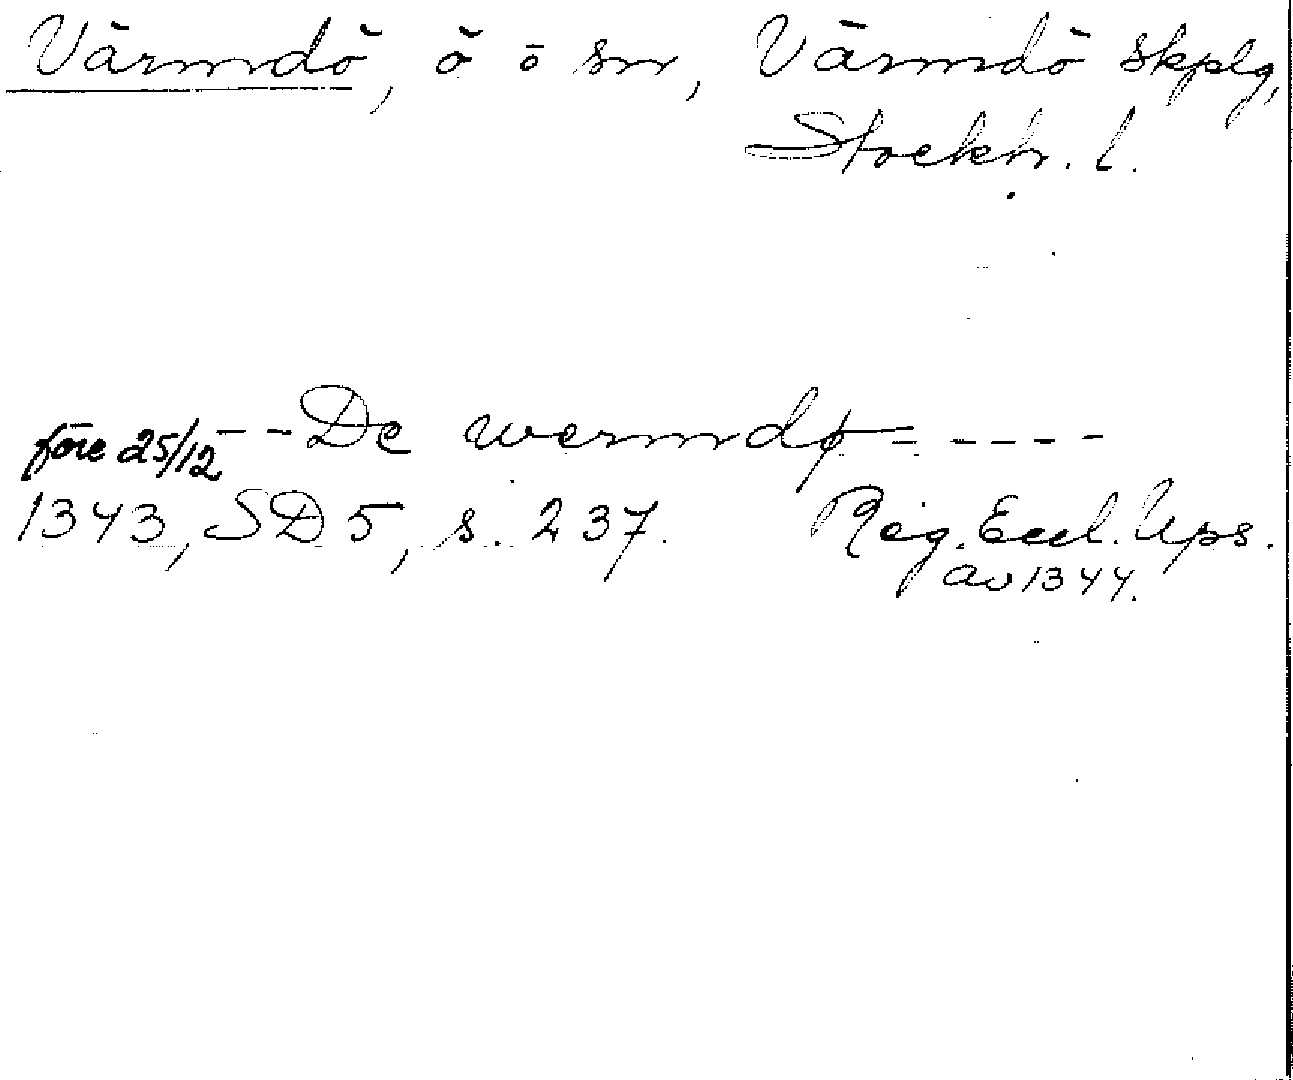 Värmdö, ö o sn, Värmdö skplg,
Stockh. l.
före 25/12 - - De wermdø - - - - -
1343, SD 5, s. 237. Reg. Eccl. Ups.
av 1344.